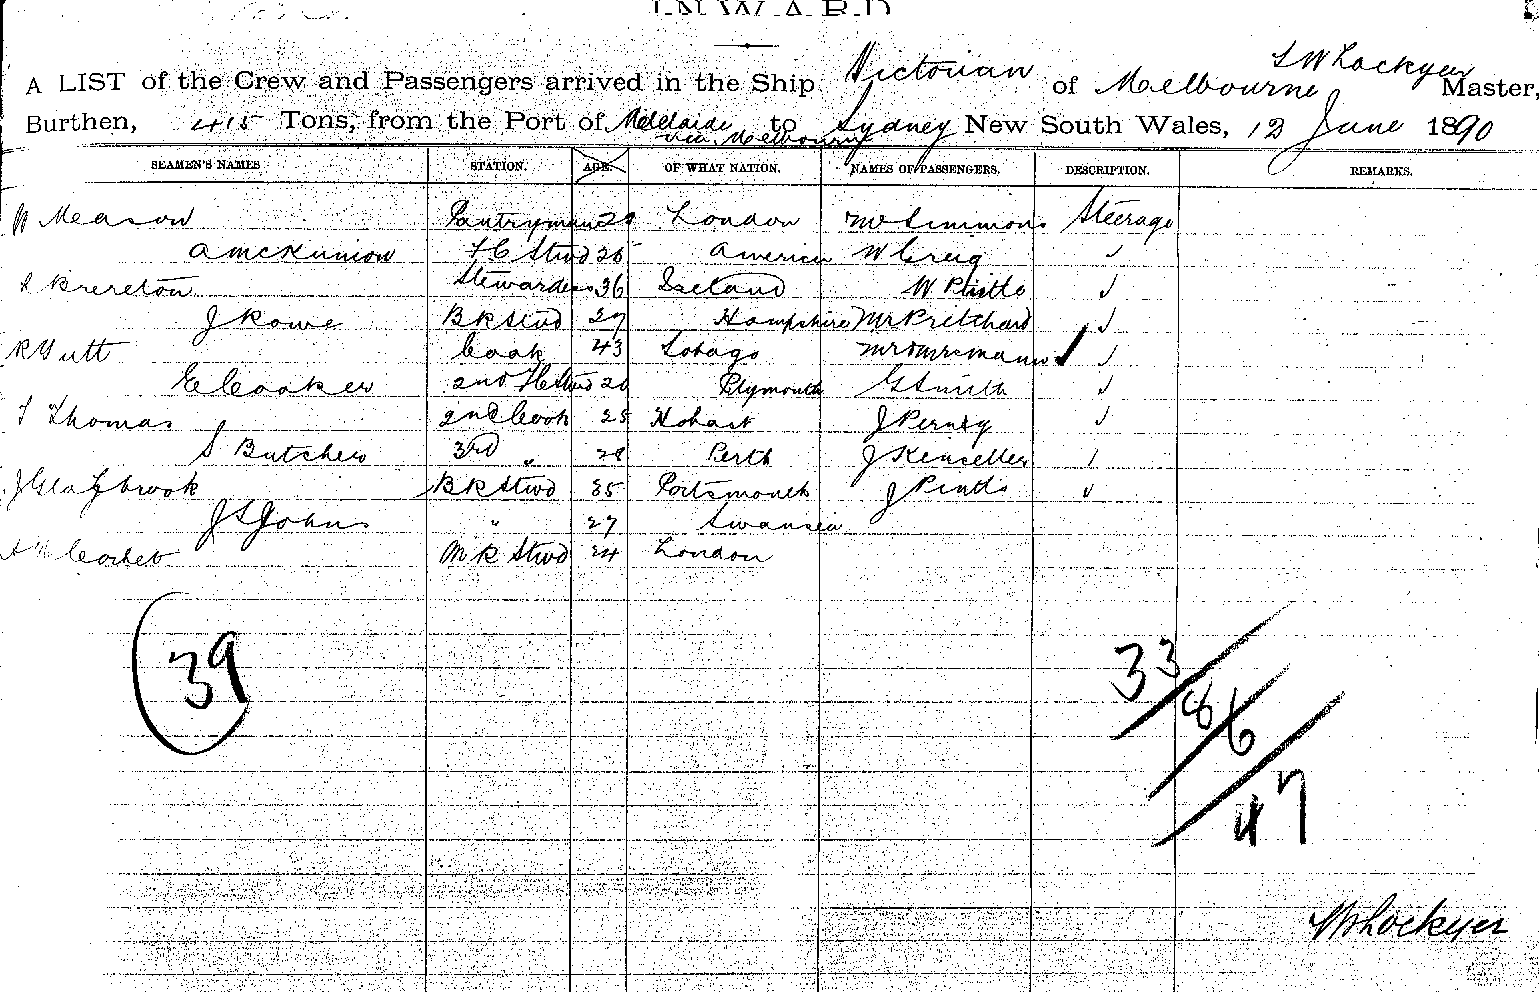 INWARD
A LIST of the Crew and Passengers arrived in the Ship Victorian of Melbourne S W Lockyer Master,
Burthen, 415 Tons, from the Port of Adelaide via Melbourne to Sydney New South Wales, 12 June 1890
SEAMEN'S NAMES STATION. AGE. OF WHAT NATION. NAMES OF PASSENGERS. DESCRIPTION. REMARKS.
W Meason Pantryman 29 London Mr Simmons Steerage
A McKunion FC Stwd 26 American W Creig ✓
Brereton Stewardess 36 Ireland W ✓
J Rowe BR Stwd 27 Hampshire Mr Pritchard ✓
R Cook 43 Tobago Mr & Mrs Mann ✓
E Cooker 2nd Stwd 20 Plymouth G Smith ✓
T Thomas 2nd Cook 25 Hobart J ✓
S Butcher 3rd " 28 Perth J Kenseller
J Glazbrook BR Stwd 35 Portsmouth J ✓
J S Johns " 27 Swansea
Corbet MR Stwd 24 London
39
33
86
47
Lockyer